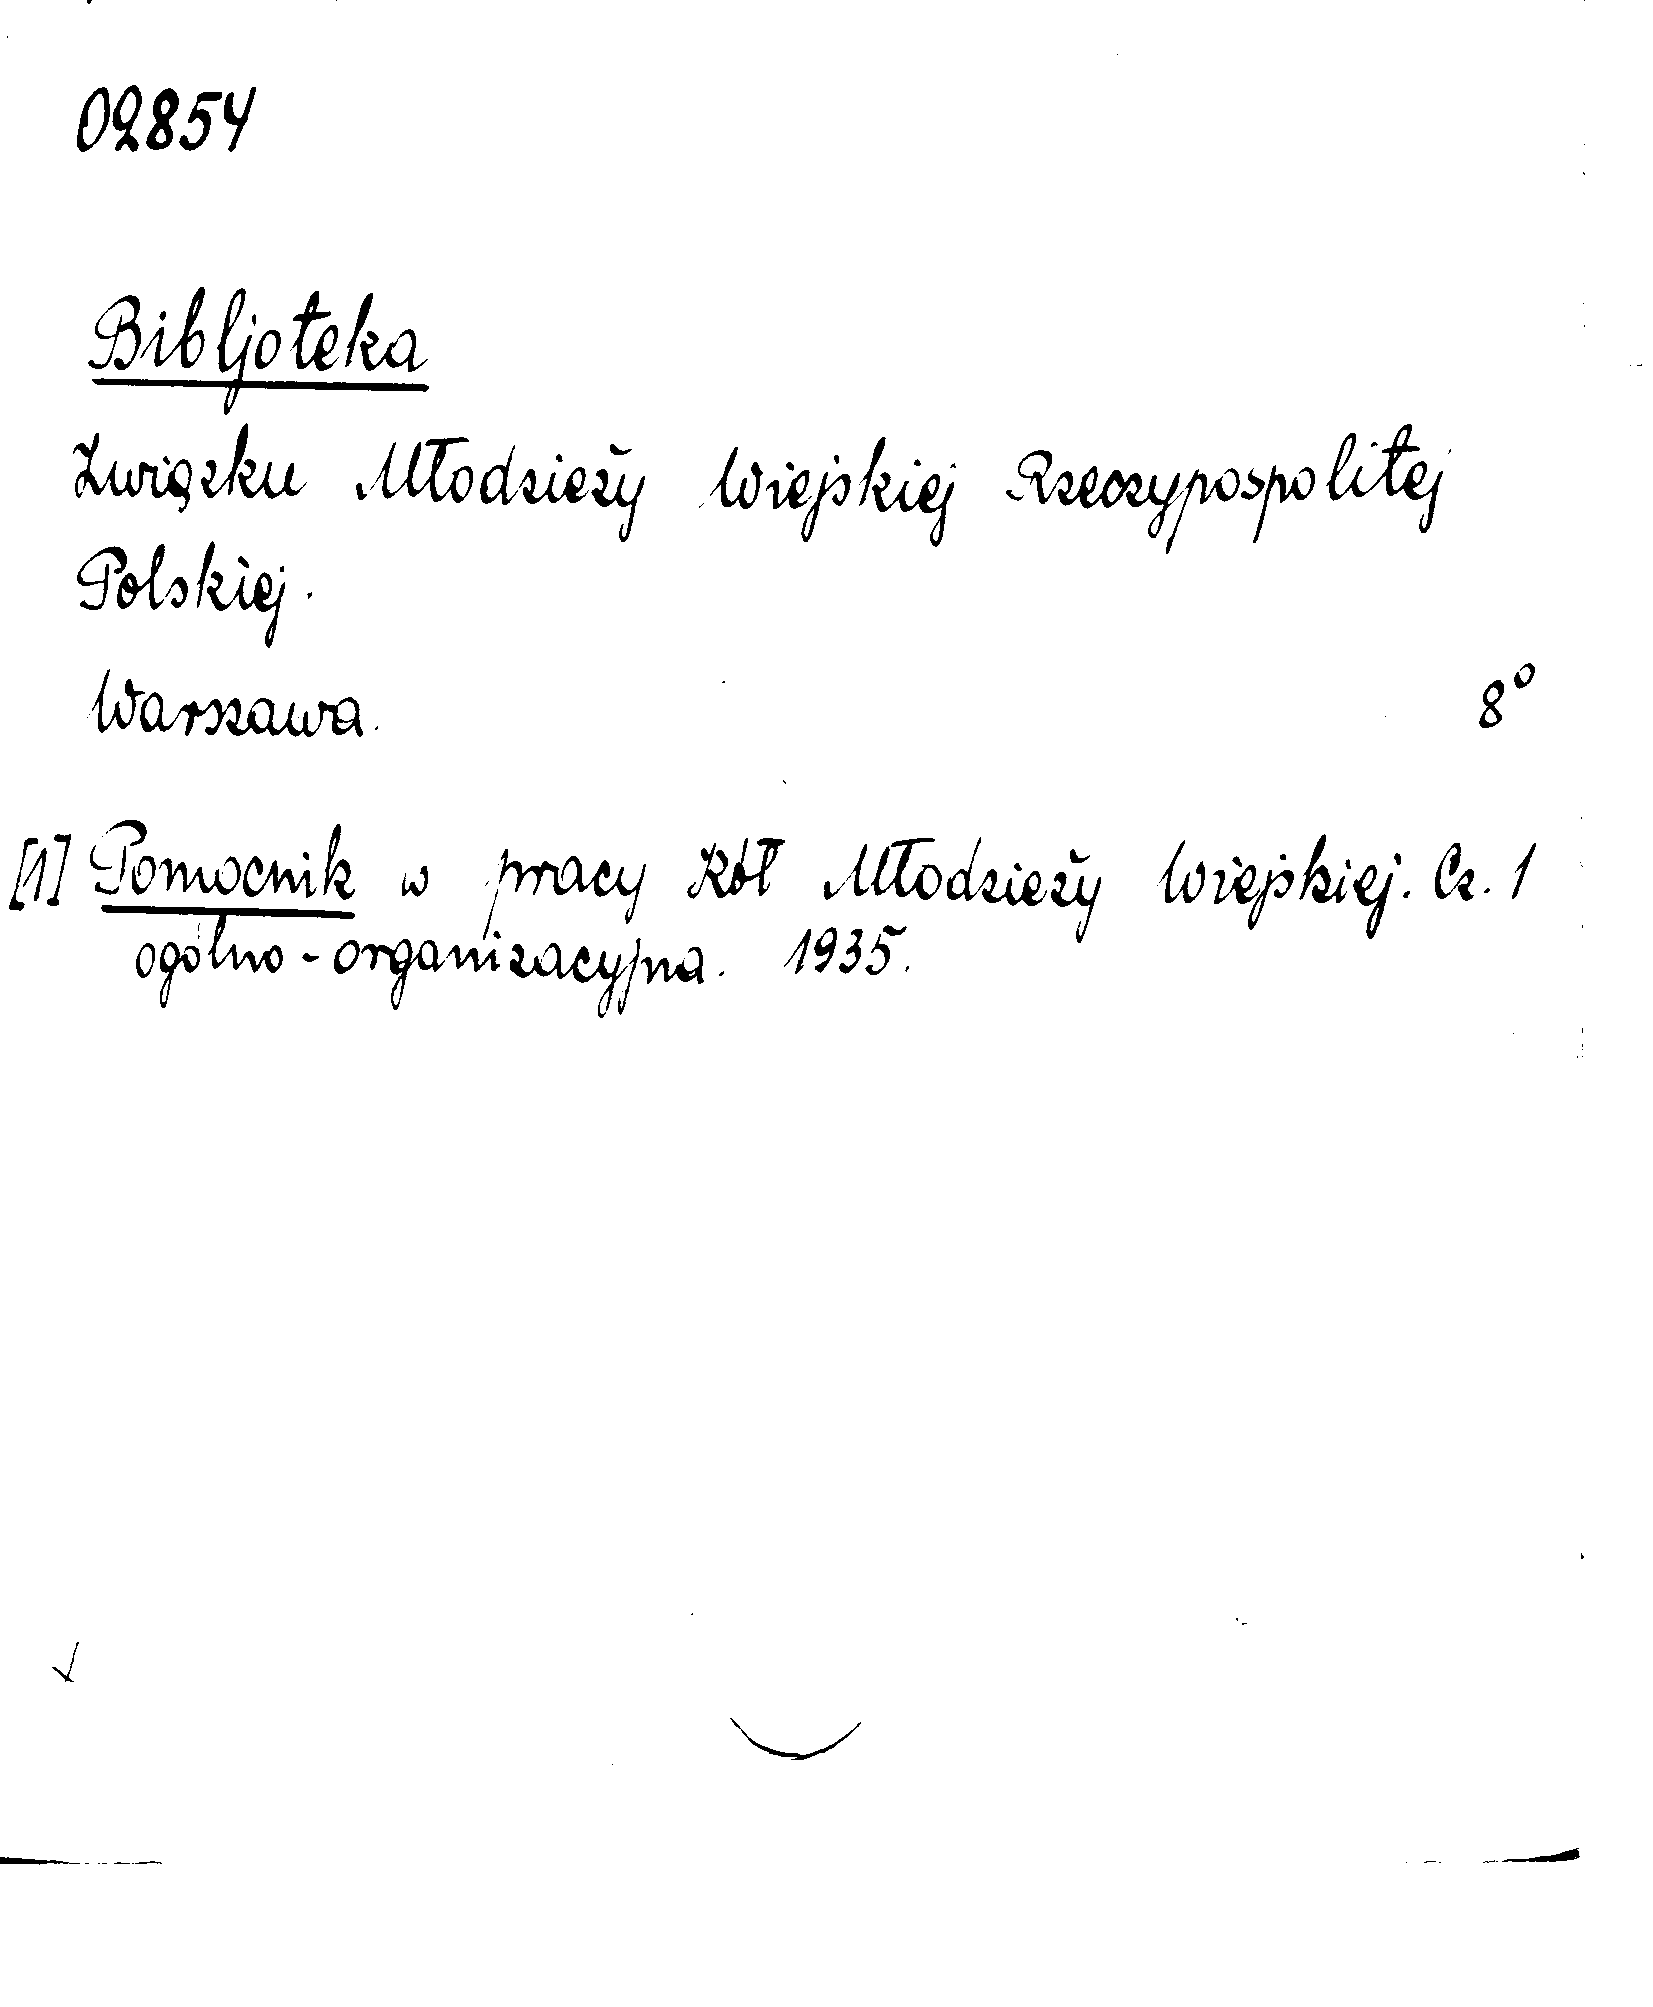 02854
Bibljoteka
Związku Młodzieży Wiejskiej Rzeczypospolitej
Polskiej.
Warszawa. 8°
[1] Pomocnik w pracy Kół Młodzieży Wiejskiej. Cz. 1
ogólno-organizacyjna. 1935.